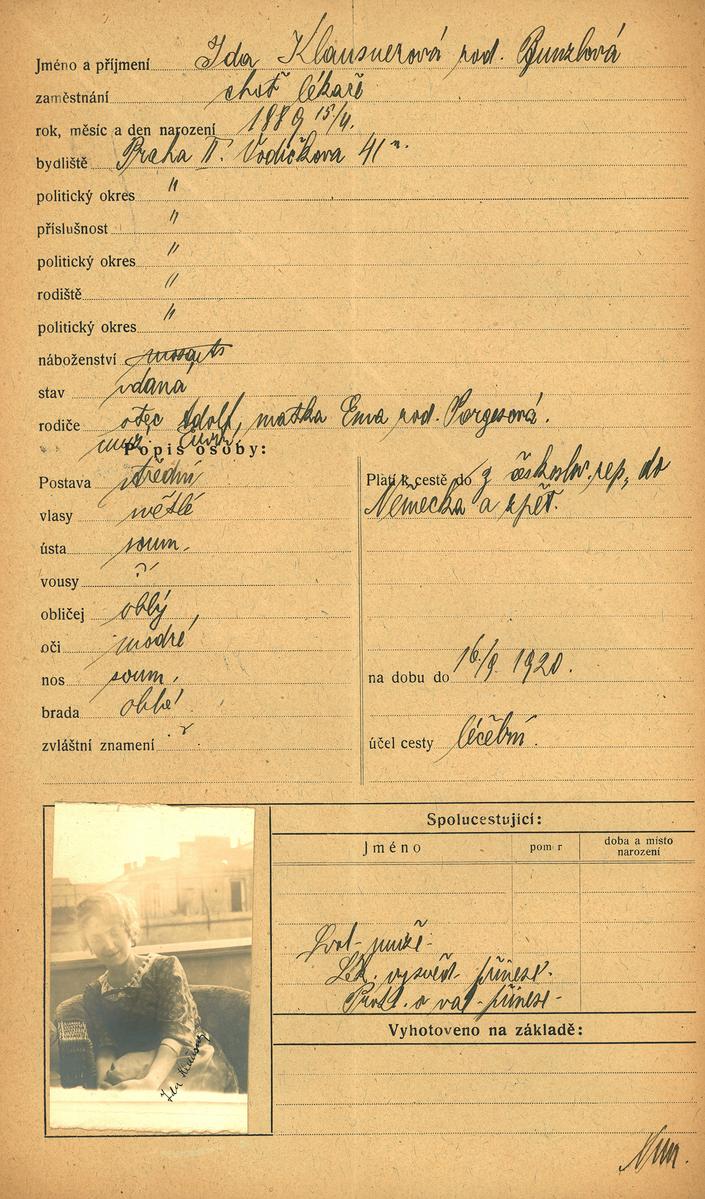 Jméno a příjmení Ida Klausnerová rod. Bunzlová
zaměstnání choť lékaře
rok, měsíc a den narození 1889 15/4.
bydliště Praha II. Vodičkova 41
politický okres "
příslušnost "
politický okres "
rodiště "
politický okres "
náboženství
stav vdaná
rodiče otec Adolf, matka Ema rod. Porgesová.
muž
Popis osoby:
Postava střední
vlasy světlé
ústa soum.
vousy
obličej oblý
oči modré
nos soum.
brada oblé
zvláštní znamení
Platí k cestě do z českoslov. rep. do
Německa a zpět.
na dobu do 16/9. 1920.
účel cesty léčební.
Spolucestující:
Jméno
pom r
doba a místo
narození
Svol. muže
Lék. vysvěd. přinese.
přinese
Vyhotoveno na základě: